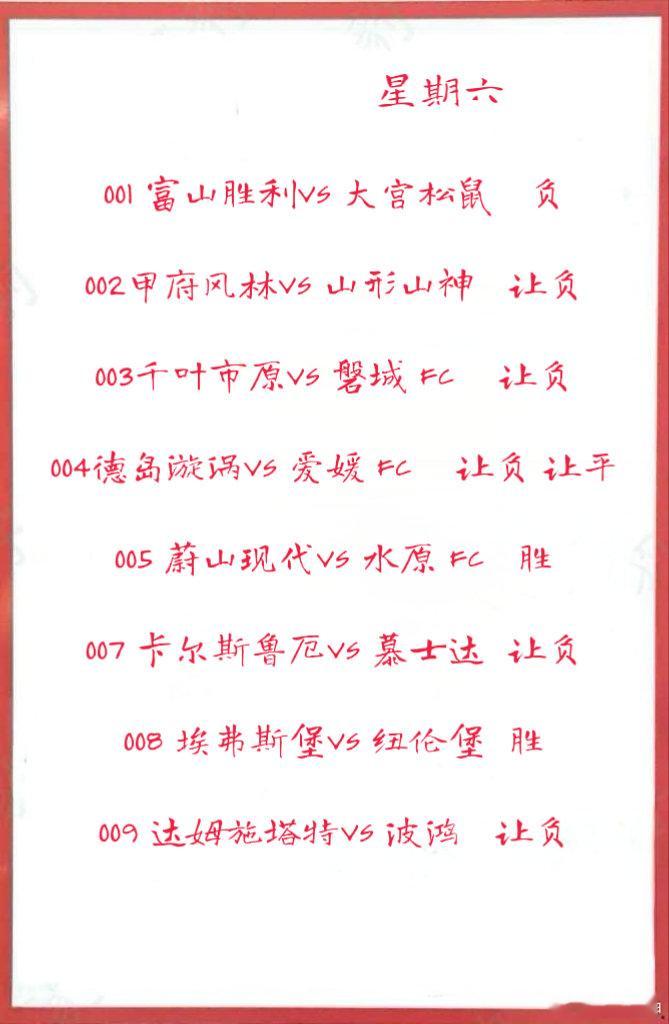 星期六
001 富山胜利VS 大宫松鼠 负
002甲府风林VS 山形山神 让负
003千叶市原VS 磐城 FC 让负
004德岛漩涡VS 爱媛 FC 让负 让平
005 蔚山现代VS 水原 FC 胜
007 卡尔斯鲁厄VS 慕士达 让负
008 埃弗斯堡VS 纽伦堡 胜
009 达姆施塔特VS 波鸿 让负